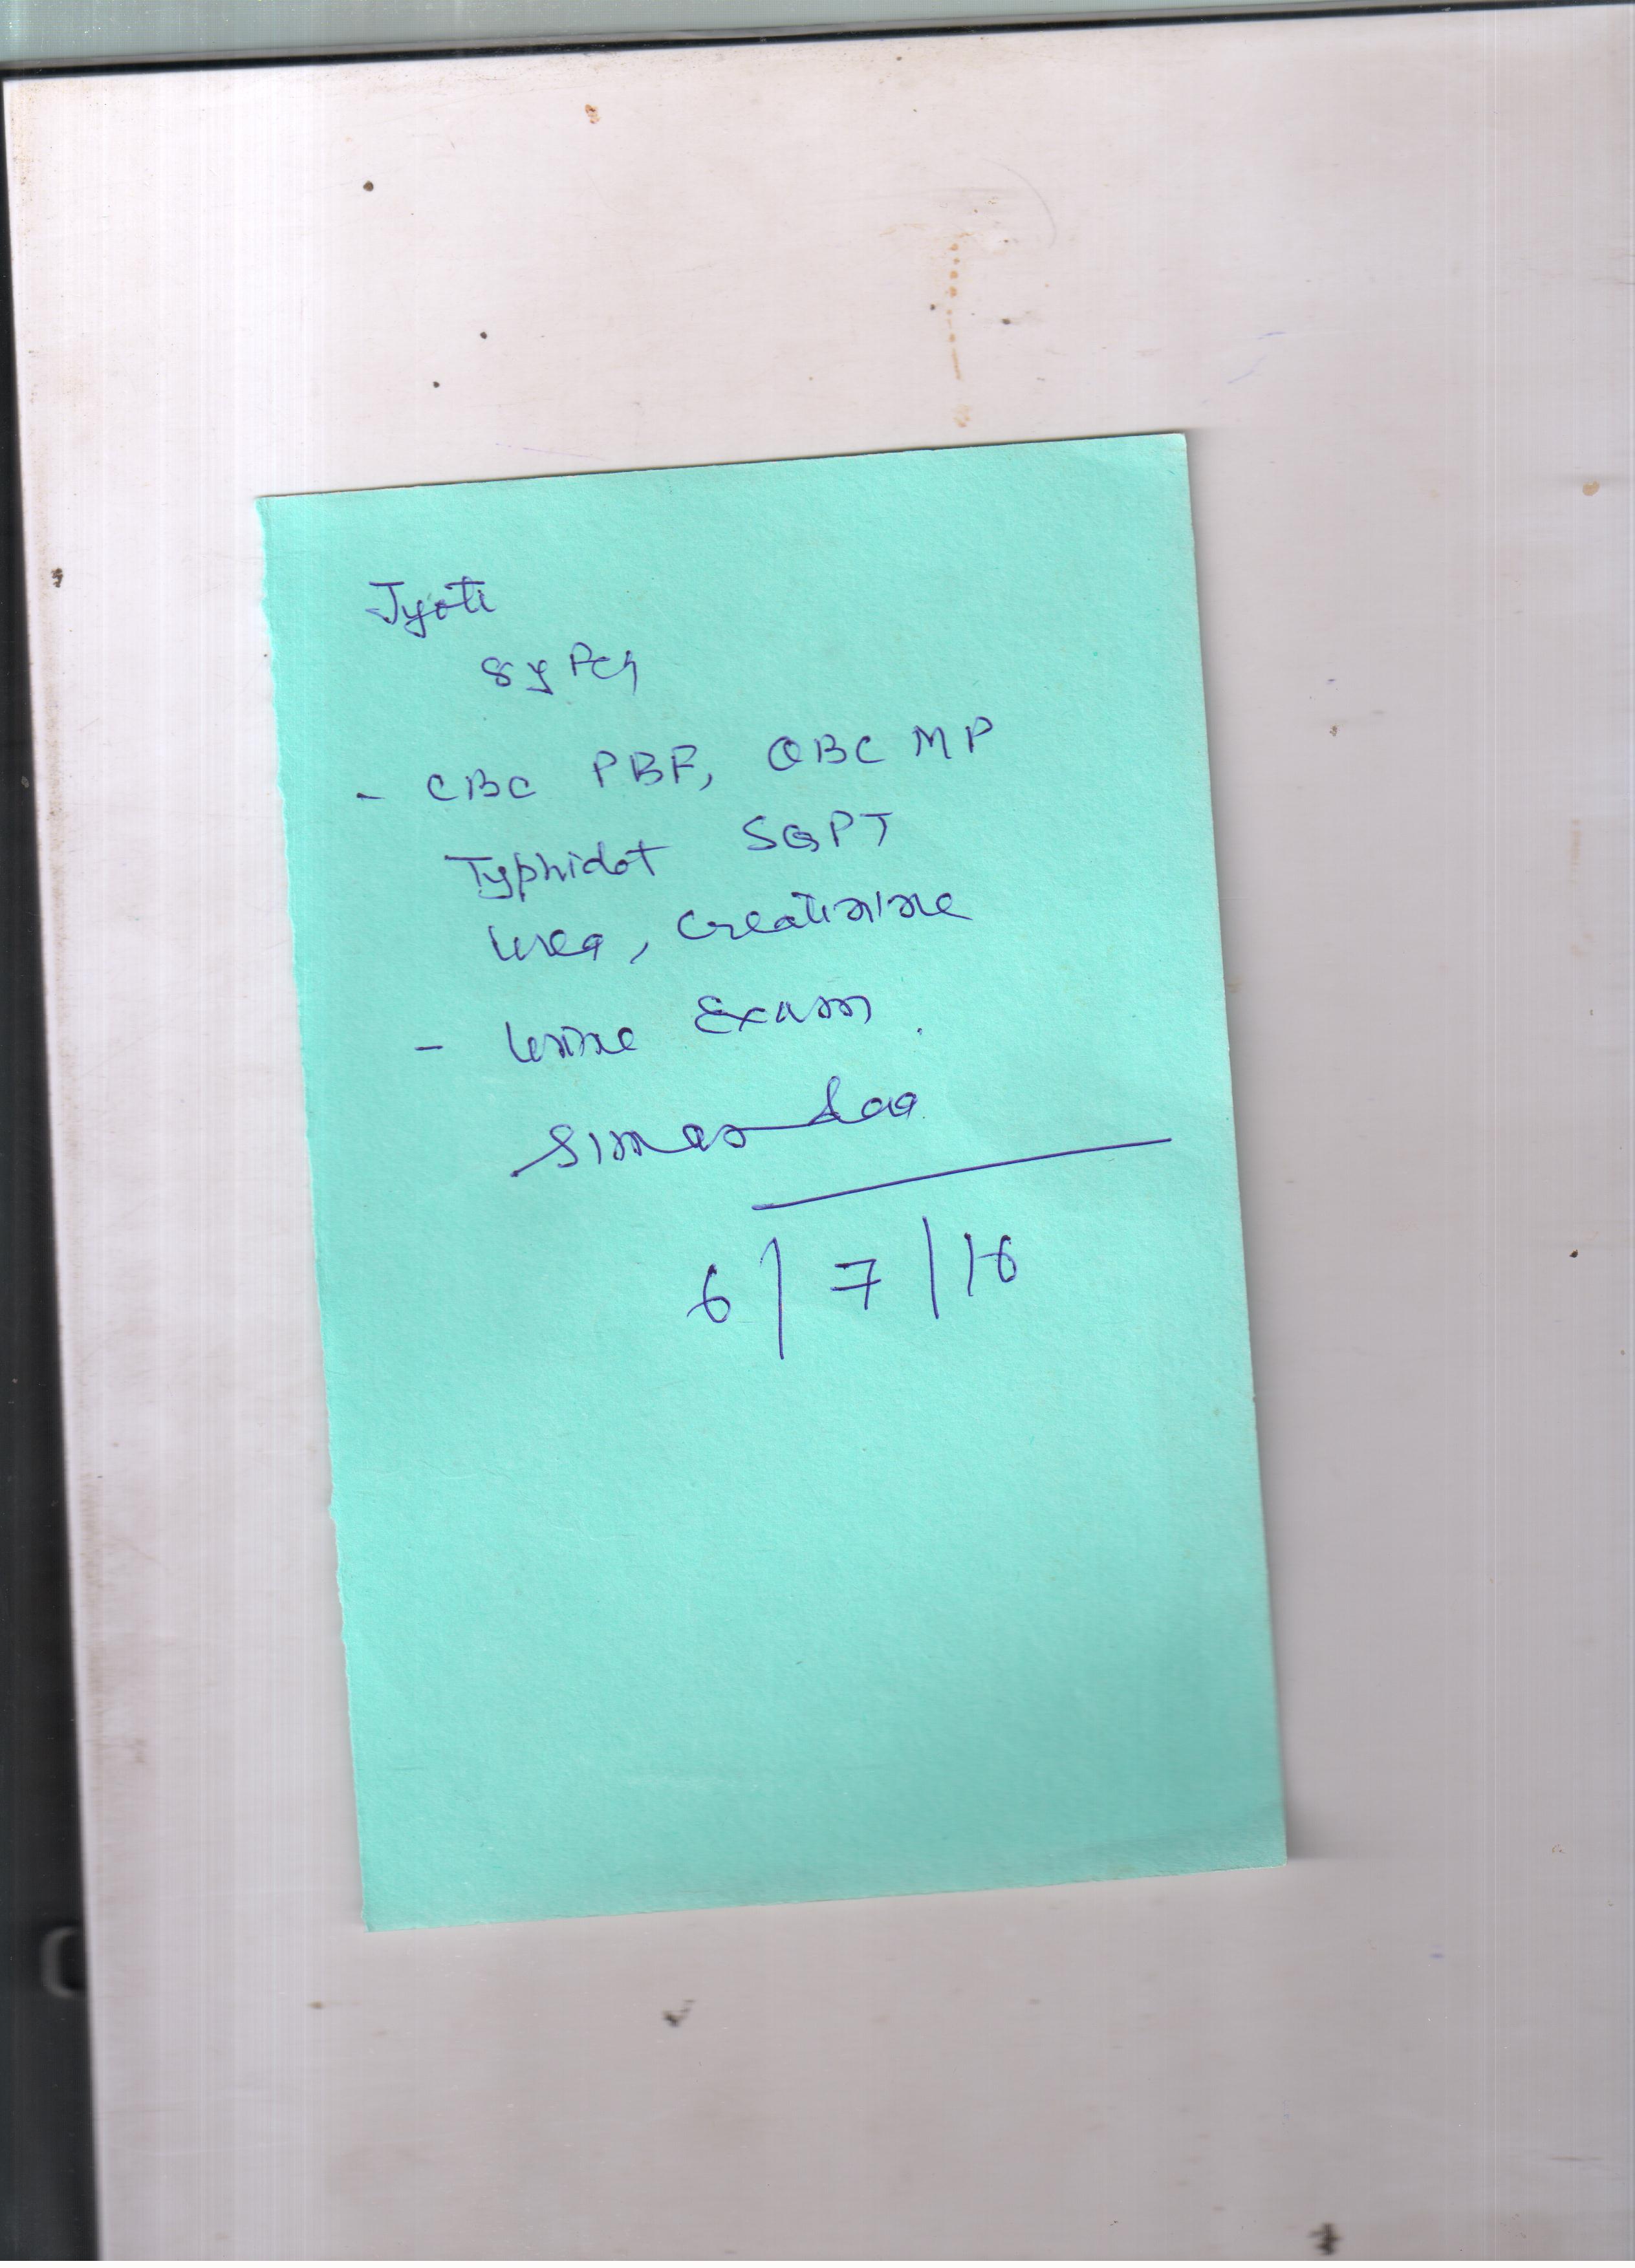 Jyoti
8y FCh
- CBC PBF, QBC MP
Typhidot SGPT
Urea, Creatinine
- Urine Exam.
6/7/16